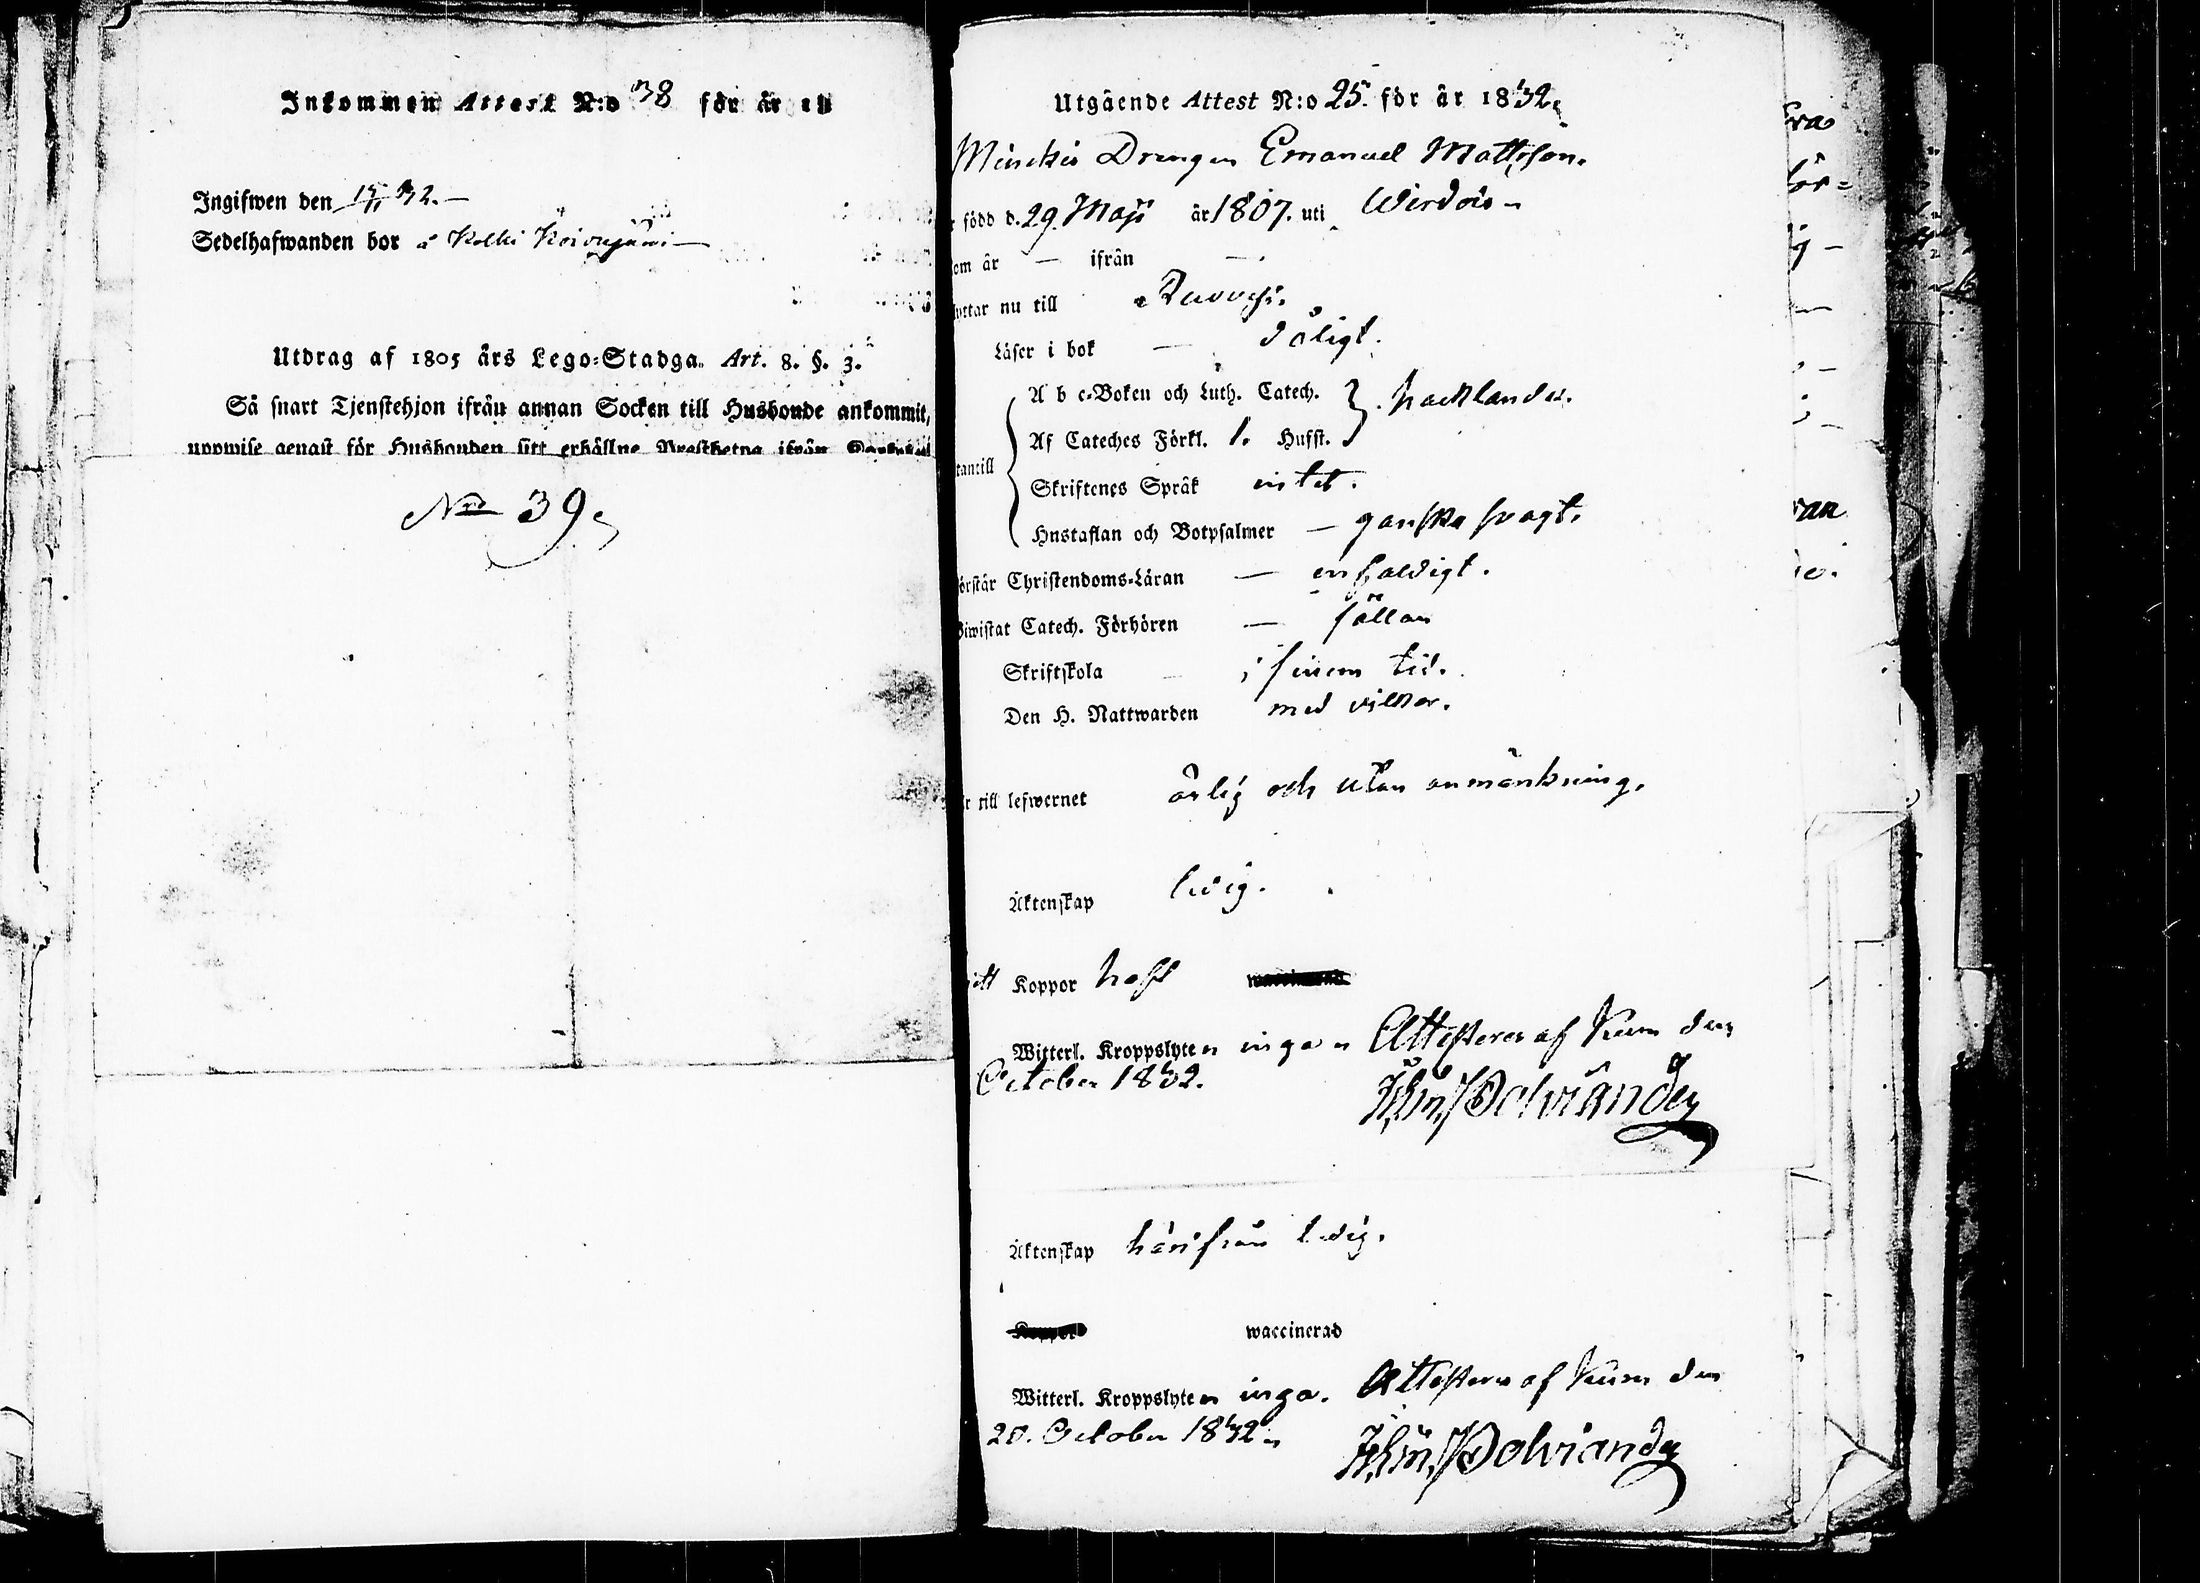 Inkommen Attest N:o 38 för år 18
Ingifwen den 32. —
Sedelhafwanden bor å Kolki
Utdrag af 1805 års Lego-Stadga. Art. 8. §. 3.
Så snart Tjenstehjon ifrån annan Socken till Husbonde ankommit,
uppwise genast för Husbonden sitt erhållne Prestbetyg ifrån
Nro 39.
Utgående Attest N:o 25. för år 1832.
Drengen Emanuel Mattsson.
född d. 29. Maji år 1807. uti Wirdois
om år — ifrån —
nu till Ruovesi.
Läser i bok — dåligt.
A b c-Boken och Luth. Catech.
Af Cateches Förkl. 1. Husst. } hacklandes.
tantill
Skriftenes Språk intet.
Hustaflan och Botpsalmer — ganska svagt.
örstår Christendoms-Läran — enfaldigt.
iwistat Catech. Förhören — sällan
Skriftskola — i sinom tid.
Den H. Nattwarden med vilkor.
r till lefwernet ärlig och utan anmärkning.
Äktenskap ledig.
Koppor haft
Witterl. Kroppslyten inga Attesteras af Kuru den
October 1832.
Polviander
Äktenskap härifrån ledig.
waccinerad
Witterl. Kroppslyten inga. Attesteras af Kuru den
20. October 1832.
Polviander